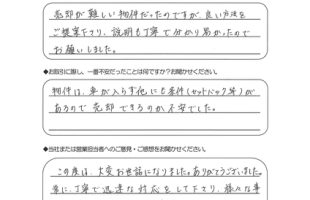 売却が難しい物件だったのですが、良い方法を
ご提案下さり、説明も丁寧で分かり易かったので
お願いしました。
◆お取引に際し、一番不安だったことは何ですか？お聞かせください。
物件は、車が入らず他にも条件(セットバック等)が
あるので売却できるのか不安でした。
◆当社または営業担当者へのご意見・ご感想をお聞かせください。
この度は、大変お世話になりました。ありがとうございました。
常に、丁寧で迅速な対応をして下さり、様々な事